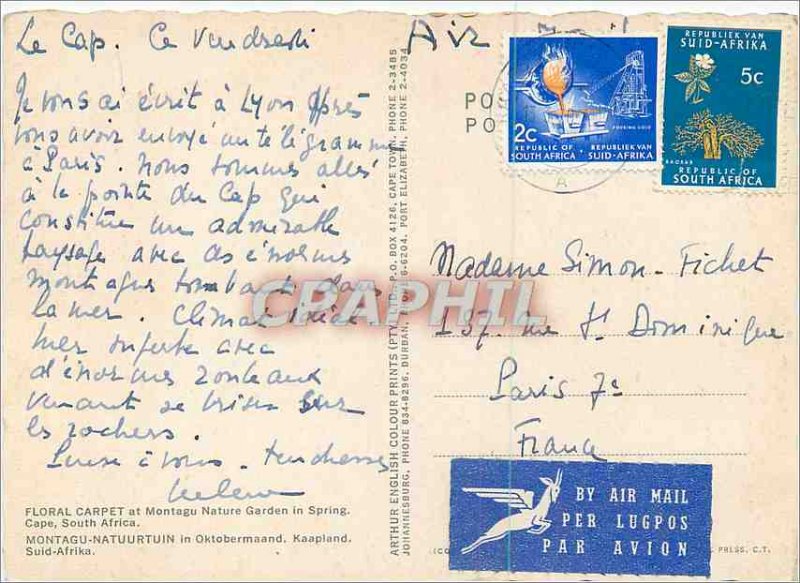 Le Cap. Ce Vendredi
Je vous ai écrit à Lyon après
vous avoir envoyé un télégramme
à Paris. Nous sommes allés
à la pointe du Cap qui
constitue un admirable
paysage avec d'énormes
montagnes tombant dans
la mer. Climat
mer superbe avec
d'énormes rouleaux
venant se briser sur
les rochers.
Pense à vous. tendresses
FLORAL CARPET at Montagu Nature Garden in Spring.
Cape, South Africa.
MONTAGU-NATUURTUIN in Oktobermaand. Kaapland.
Suid-Afrika.
ARTHUR ENGLISH COLOUR PRINTS (PTY) LTD., P.O. BOX 4126, CAPE TOWN, PHONE 2-3485
JOHANNESBURG, PHONE 834-8296. DURBAN, 6-6204. PORT ELIZABETH, PHONE 2-4034
Air Mail
PO
PO
2c
POURING GOLD
REPUBLIC OF SOUTH AFRICA · REPUBLIEK VAN SUID-AFRIKA
REPUBLIEK VAN
SUID-AFRIKA
5c
BAOBAB
REPUBLIC OF
SOUTH AFRICA
A
Madame Simon-Fichet
137. rue St Dominique
Paris 7e
France
CRAPHIL
BY AIR MAIL
PER LUGPOS
PAR AVION
(CO
PRESS. C.T.